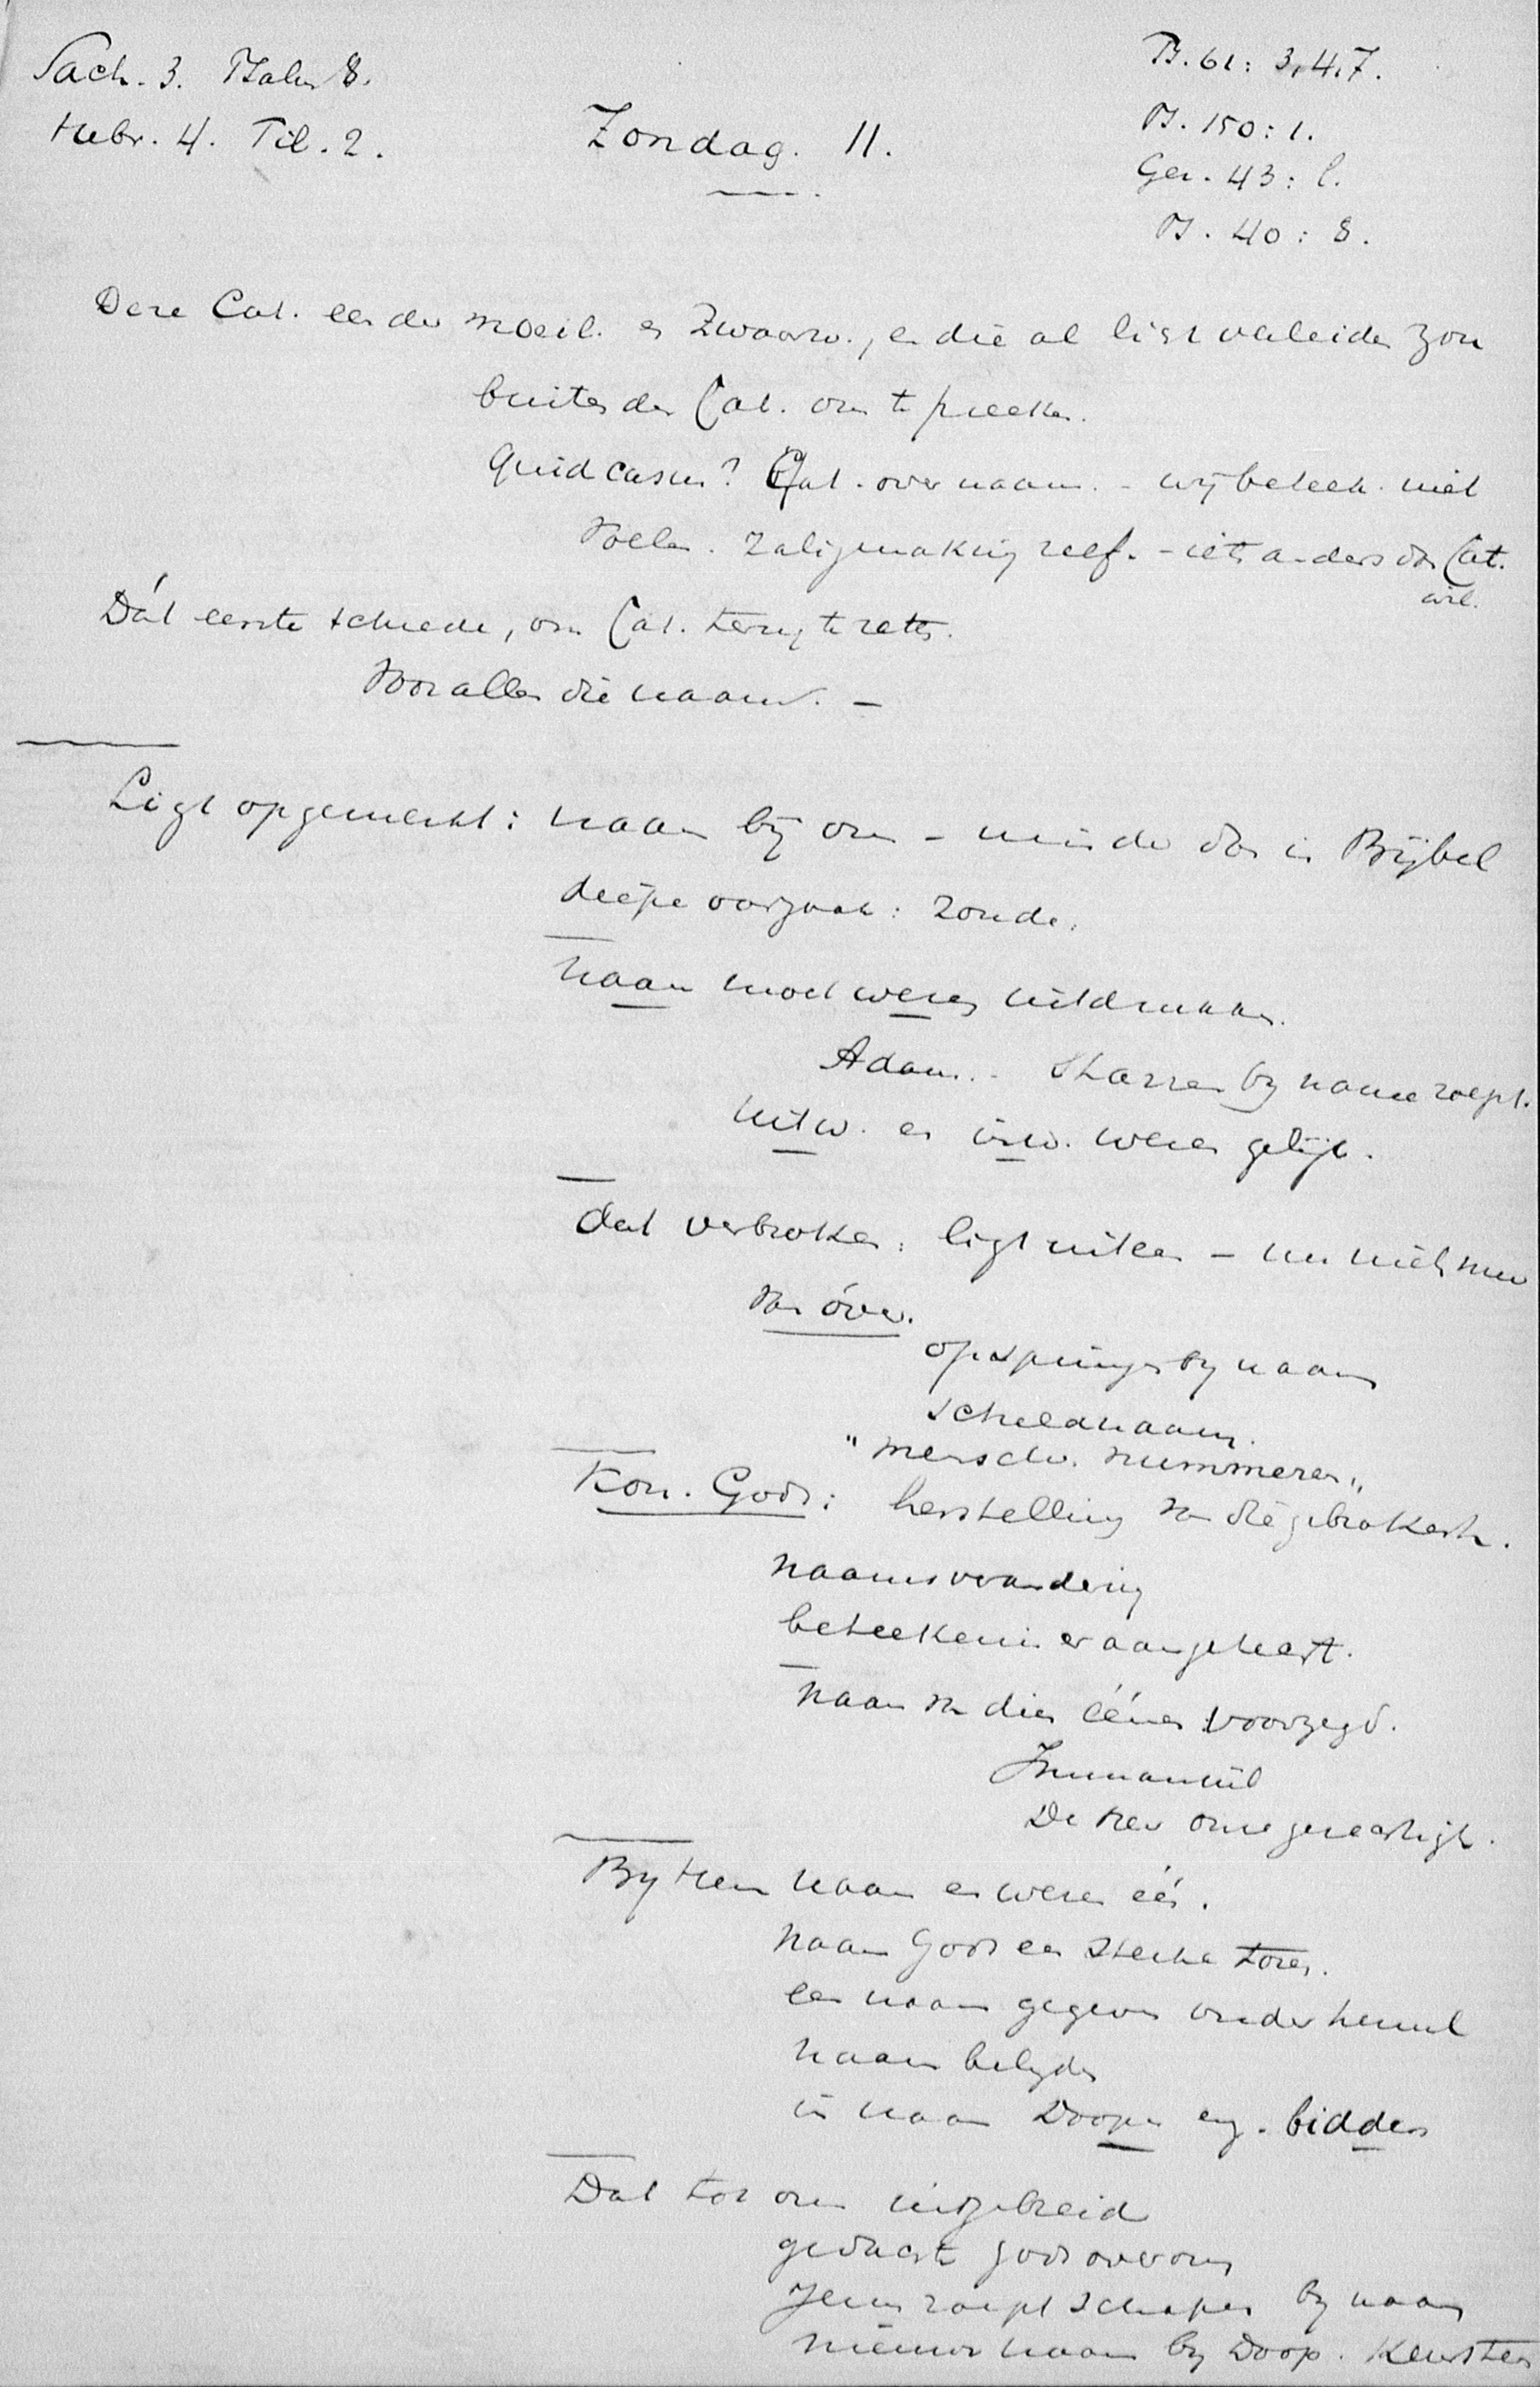 Sach. 3. Psalm 8.
Hebr. 4. Til. 2.
Zondag. 11.
Ps. 61: 3,4,7.
Ps. 150: 1.
Ges. 43: 1.
Ps. 40: 8.
Deze Cat. een der moeil. en Zwaarw., en die al ligt verleiden zou
buiten den Cat. om te preeken.
Quid casus? Cat. over naam. - wij beteek. niet
voelen. Zaligmaking zelf. - iets anders dan Cat.
wil.
Dát eerste schrede, om Cat. terug te zetten.
Voor allen die naam. -
Ligt opgemerkt: naam bij ons - minder dan in Bijbel
diepe oorzaak: zonde.
naam moet wezen uitdrukken.
Adam. - Starren by name roept.
uitw. en inw. wezen gelijk.
dat verbroken: ligt uiteen - nu niets meer
van over.
opspringen by naam
scheldnaam.
"menschen nummeren"
Kon. Gods: herstelling van die gebrokenh.
naamsverandering
beteekenis er aan gehecht.
naam van dien éénen voorzegd.
Immanuel
De Heer onze gerechtigh.
By Hem naam en wezen één.
naam Gods een sterke toren.
een naam gegeven onder hemel
naam belyden
in naam Doopen enz. bidden
Dat tot ons uitgebreid
gedachte Gods over ons
Jezus roept schapen by naam
nieuwe naam by Doop. Kersten